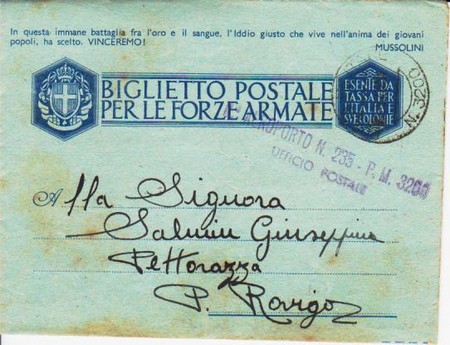 In questa immane battaglia fra l'oro e il sangue, l'Iddio giusto che vive nell'anima dei giovani
popoli, ha scelto. VINCEREMO!
MUSSOLINI
BIGLIETTO POSTALE
PER LE FORZE ARMATE
ESENTE DA
TASSA PER
L'ITALIA E
SVE COLONIE
N. 3200
AEROPORTO N. 235 - P. M. 3200
UFFICIO POSTALE
Alla Signora
Salvini Giuseppina
Pettorazza
P. Rovigo